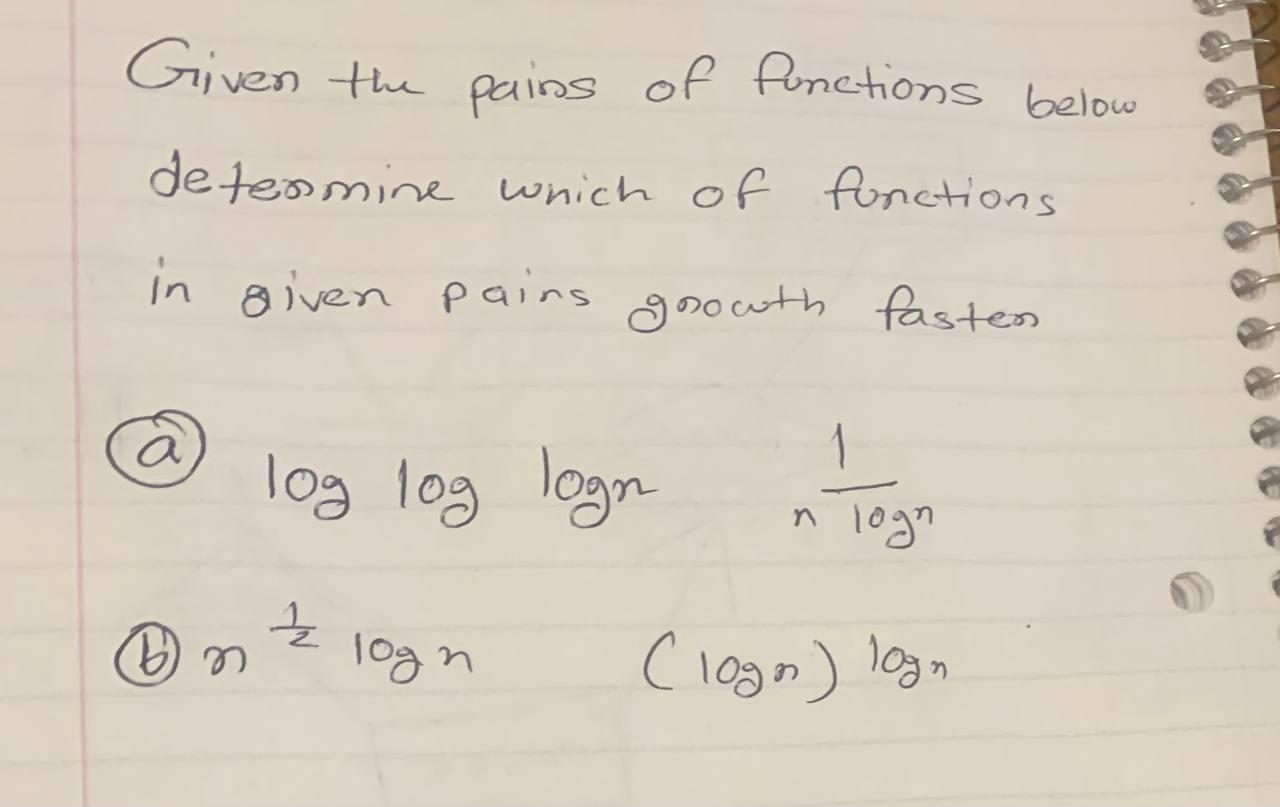 Given the pairs of functions below
determine which of functions
in given pairs growth faster
(a) log log logn 1/(n logn)
(b) n^(1/2) log n (logn) logn